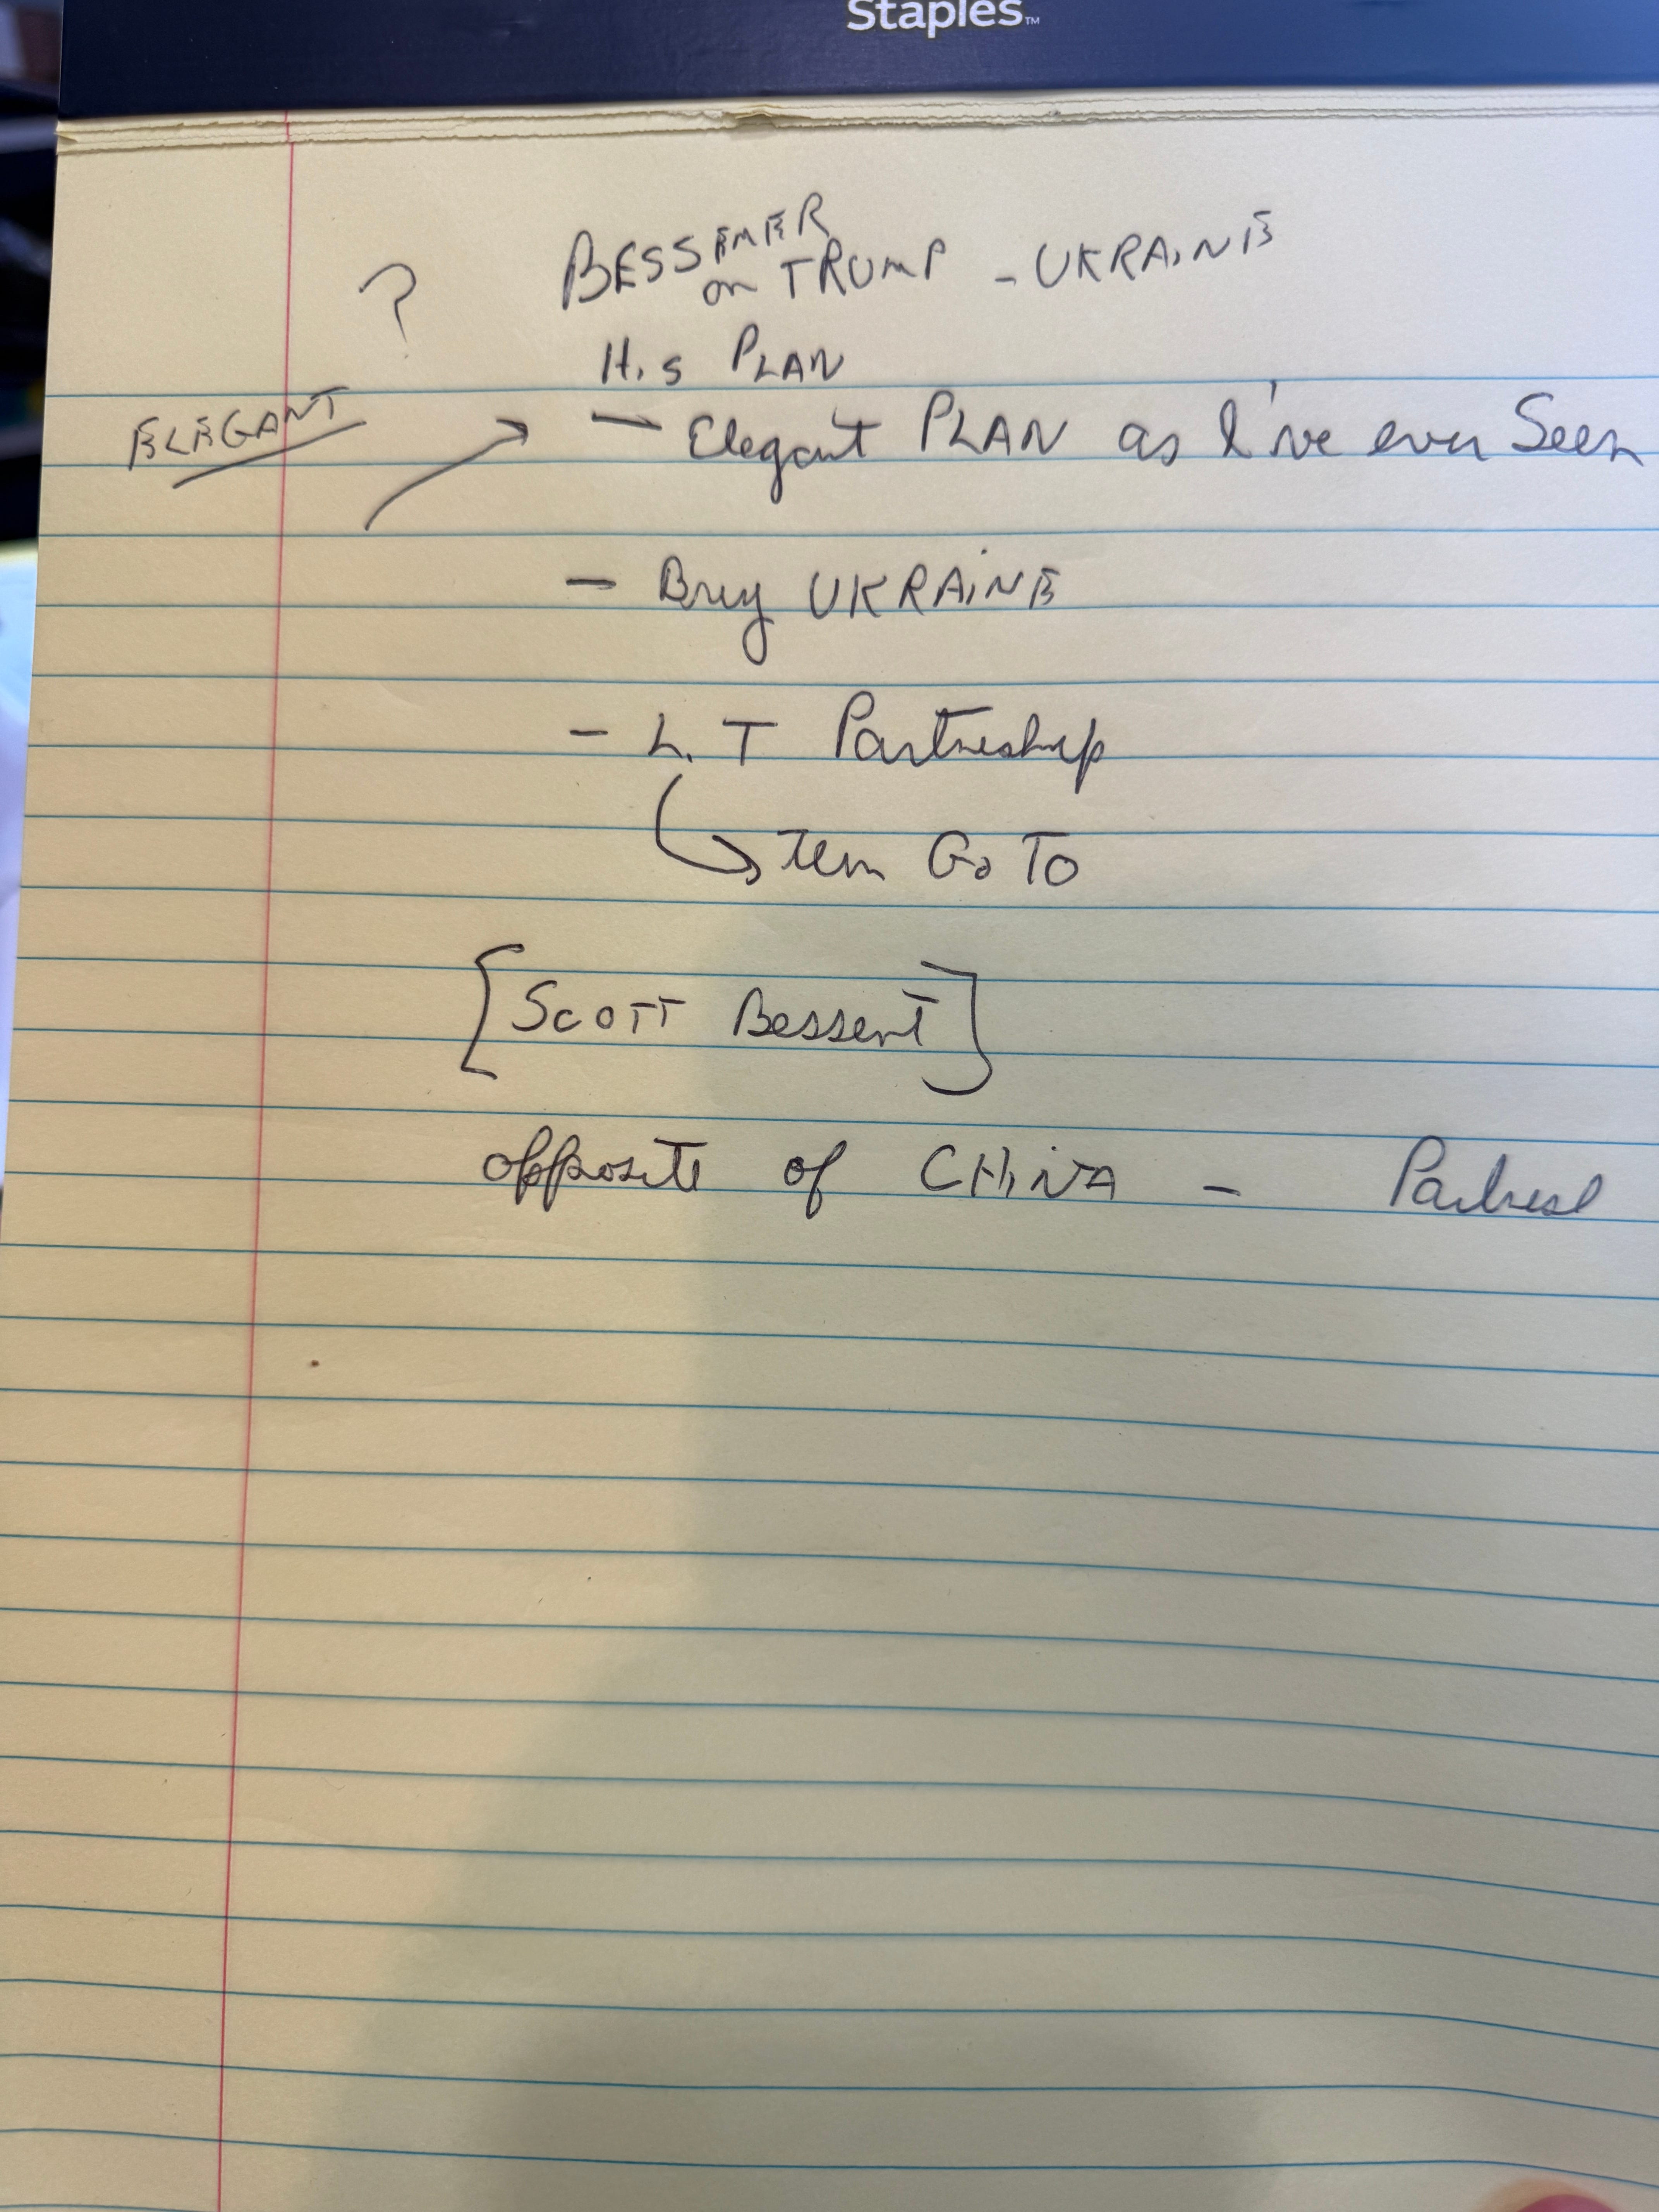 Staples™
? BESSEMER
on TRUMP - UKRAINE
His PLAN
ELEGANT
- Elegant PLAN as I've ever Seen
- Buy UKRAINE
- L.T Partneship
Go To
[Scott Bessent]
opposite of CHINA -